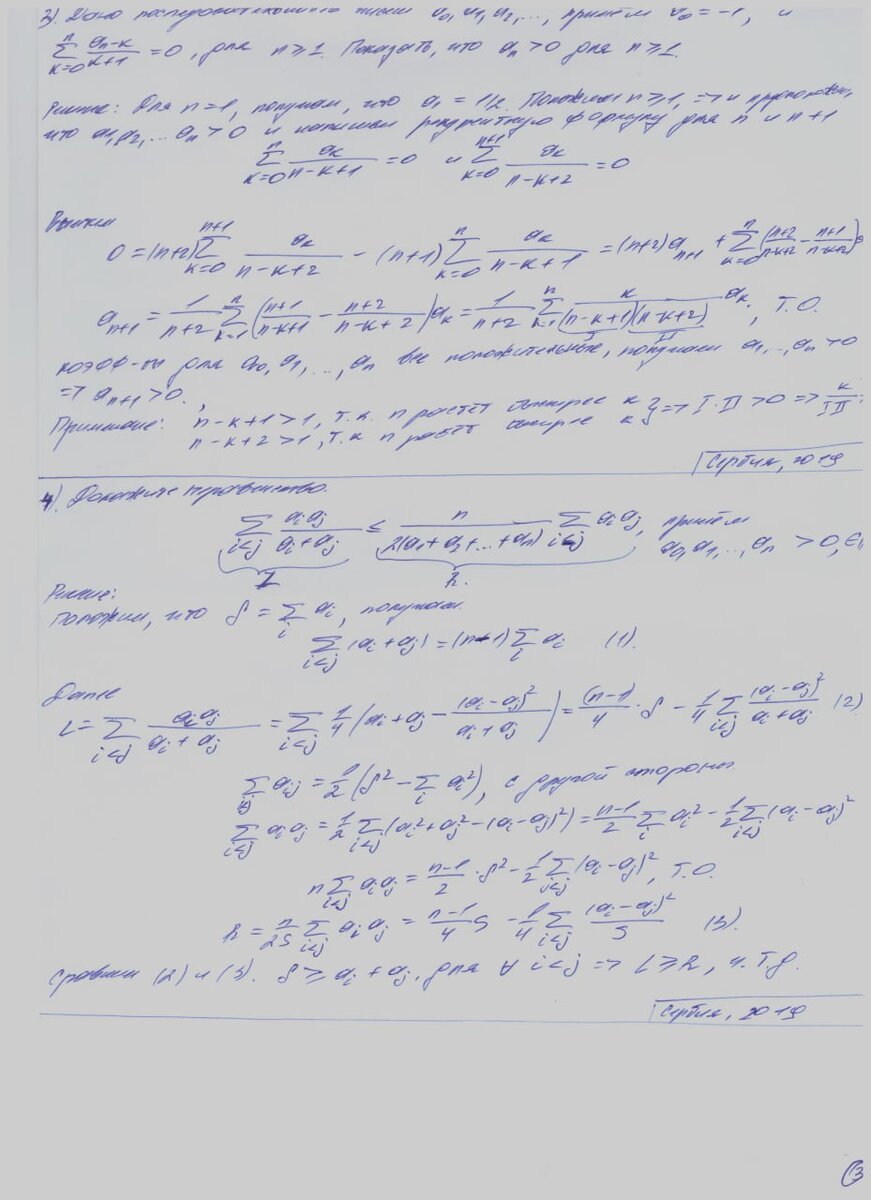 3). Дано последовательность чисел a₀, a₁, a₂, ..., причём a₀ = -1, и
∑_{k=0}^{n} a_{n-k}/(k+1) = 0, для n ≥ 1. Показать, что aₙ > 0 для n ≥ 1.
Решение: Для n=1, получим, что a₁ = 1/2. Положим n ≥ 1, => и предположим,
что a₁, a₂, ... aₙ > 0 и напишем рекуррентную формулу для n и n+1
∑_{k=0}^{n} a_k/(n-k+1) = 0 и ∑_{k=0}^{n+1} a_k/(n-k+2) = 0
Вычтем
0 = (n+2) ∑_{k=0}^{n+1} a_k/(n-k+2) - (n+1) ∑_{k=0}^{n} a_k/(n-k+1) = (n+2) a_{n+1} + ∑_{k=0}^{n} ((n+2)/(n-k+2) - (n+1)/(n-k+2))
a_{n+1} = 1/(n+2) ∑_{k=1}^{n} ((n+1)/(n-k+1) - (n+2)/(n-k+2)) a_k = 1/(n+2) ∑_{k=1}^{n} k/((n-k+1)(n-k+2)) a_k, Т.О.
I II
коэфф-ты для a₀, a₁, ..., aₙ все положительные, получаем a₁, ..., aₙ > 0
=> a_{n+1} > 0.
Примечание: n-k+1 > 1, т.к. n растёт быстрее k
n-k+2 > 1, т.к n растёт быстрее k } => I·II > 0 => k/I II
Сербия, 2019
4). Докажите неравенство.
∑_{i<j} a_i a_j/(a_i + a_j) ≤ n/(2(a₁+a₂+...+aₙ)) ∑_{i<j} a_i a_j, причём
a₀, a₁, ..., aₙ > 0, ∈
L R.
Решение:
Положим, что S = ∑_i a_i, получим.
∑_{i<j} (a_i + a_j) = (n-1) ∑_i a_i (1).
Далее
L = ∑_{i<j} a_i a_j/(a_i + a_j) = ∑_{i<j} 1/4 (a_i + a_j - (a_i - a_j)²/(a_i + a_j)) = (n-1)/4 · S - 1/4 ∑_{i<j} (a_i - a_j)²/(a_i + a_j) (2)
∑_{ij} a_{ij} = 1/2 (S² - ∑_i a_i²), с другой стороны.
∑_{i<j} a_i a_j = 1/2 ∑_{i<j} (a_i² + a_j² - (a_i - a_j)²) = (n-1)/2 ∑_i a_i² - 1/2 ∑_{i<j} (a_i - a_j)²
n ∑_{i<j} a_i a_j = (n-1)/2 · S² - 1/2 ∑_{i<j} (a_i - a_j)², Т.О.
R = n/2S ∑_{i<j} a_i a_j = (n-1)/4 S - 1/4 ∑_{i<j} (a_i - a_j)²/S (3).
Сравним (2) и (3). S ≥ a_i + a_j, для ∀ i<j => L ≥ R, ч.т.д.
Сербия, 2019
3